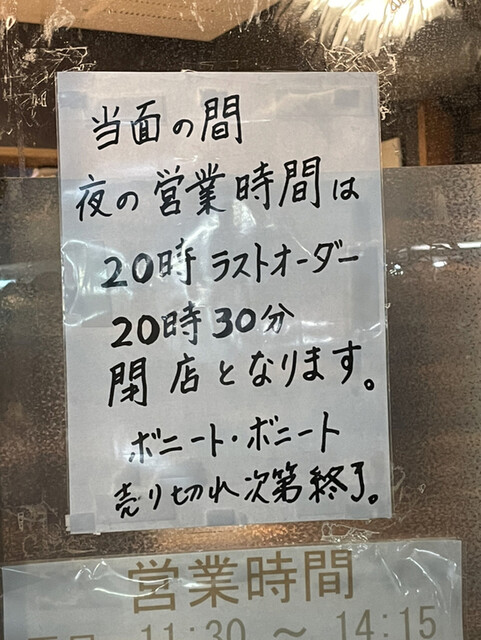 当面の間
夜の営業時間は
20時 ラストオーダー
20時30分
閉店となります。
ボニート・ボニート
売り切れ次第終了。
営業時間
11:30 ～ 14:15